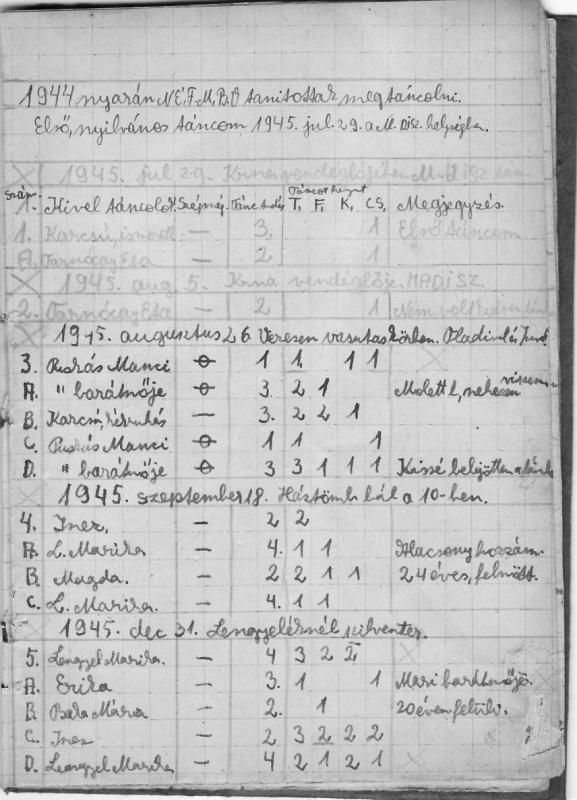 1944 nyarán N.É.F.M.B.Ö tanitottak megtáncolni.
Első, nyilvános táncom 1945. jul. 29. a M. DISZ. helységbe.
1945. jul 29. Krna vendéglőjében M
Táncot kezet
1. Kivel táncolok. Szépség. Tánc tudás T. F. K. CS. Megjegyzés.
1. Karcsú, ismerős — 3. 1 Első táncom
A. Tarnóczy Eta — 2 1
1945. aug. 5. Krna vendéglője. MADISZ.
2. Tarnóczy Eta — 2 1 Nem volt
1945. augusztus 26. Veresen vasutas körben.
3. Puskás Manci ⦵ 1 1 1 1
A. " barátnője ⦵ 3. 2 1 Molett l, nehezen viszem
B. Karcsú, kékruhás — 3. 2 2 1
C. Puskás Manci ⦵ 1 1 1
D. " barátnője ⦵ 3 3 1 1 1 Kissé beljöttem a táncba
1945. szeptember 18. Háztömb bál a 10-ben.
4. Inez, — 2 2
A. L. Marika — 4. 1 1 Alacsony hozzám.
B. Magda. — 2 2 1 1 24 éves, felnőtt.
C. L. Marika. — 4. 1 1
1945. dec 31. Lengyeléknél szilveszter.
5. Lengyel Marika. — 4 3 2 2
A. Erika — 3. 1 1 Mari barátnője.
B. Mária — 2. 1 20 éven felüli.
C. Inez — 2 3 2 2 2
D. Lengyel Marika — 4 2 1 2 1